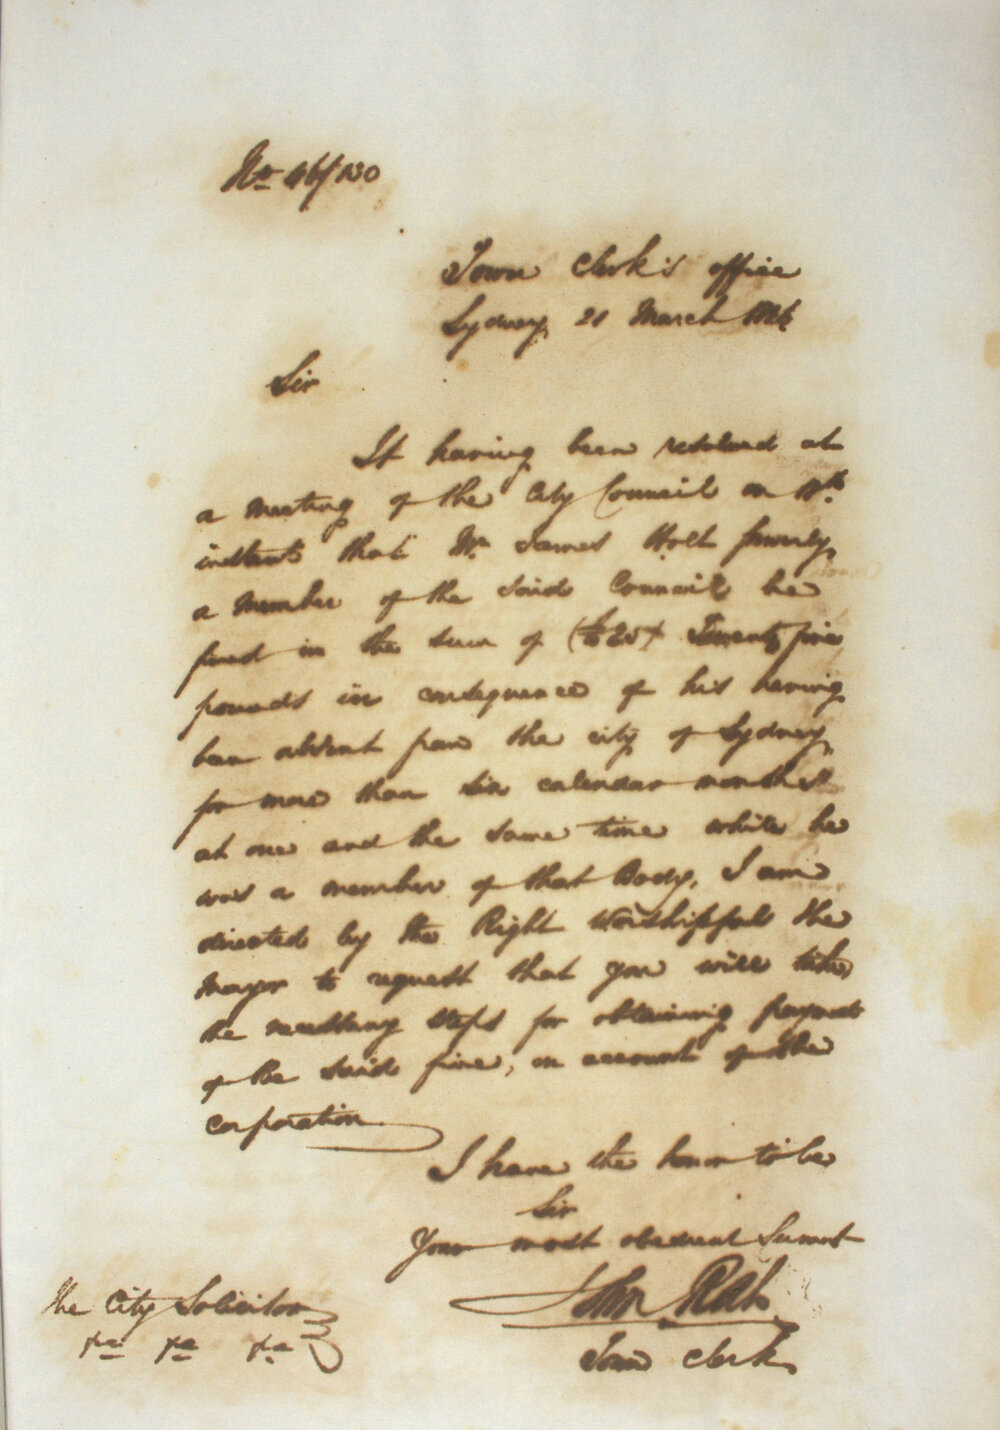 No 46/130
Town Clerk's office
Sydney 21 March 1846
Sir
It having been resolved at
a meeting of the City Council on
instant that Mr James Holt formerly
a member of the said Council be
fined in the sum of (£25) Twenty five
pounds in consequence of his having
been absent from the city of Sydney
for more than six calendar months
at one and the same time while he
was a member of that Body, I am
directed by the Right Worshipful the
Mayor to request that you will take
the necessary steps for obtaining payment
of the said fine, on account of the
corporation
I have the honor to be
Sir
Your most obedient Servant
John Rae
Town Clerk
The City Solicitor
&c &c &c